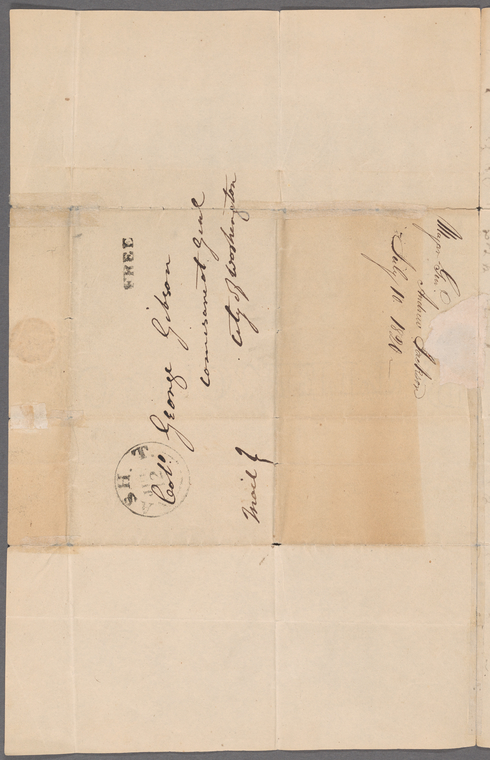 FREE
Colo. George Gibson
comisarat Genl
City of Washington
Mail }
Major Genl.
Andrew Jackson
July 10 1820